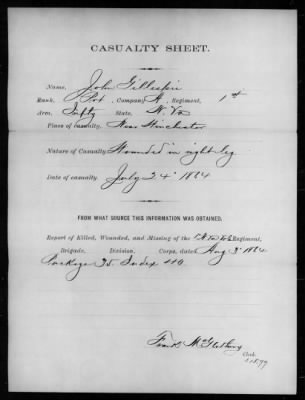 CASUALTY SHEET.
Name, John Gillespie
Rank, Pvt, Company H, Regiment, 1st
Arm, Infty State, W. Va
Place of casualty, Near Winchester
Nature of Casualty, Wounded in right leg
Date of casualty, July 24" 1864
FROM WHAT SOURCE THIS INFORMATION WAS OBTAINED.
Report of Killed, Wounded, and Missing of the Regiment,
Brigade, Division, Corps, dated Aug 3" 1864
Package 35. Index 440.
Frank
Clerk